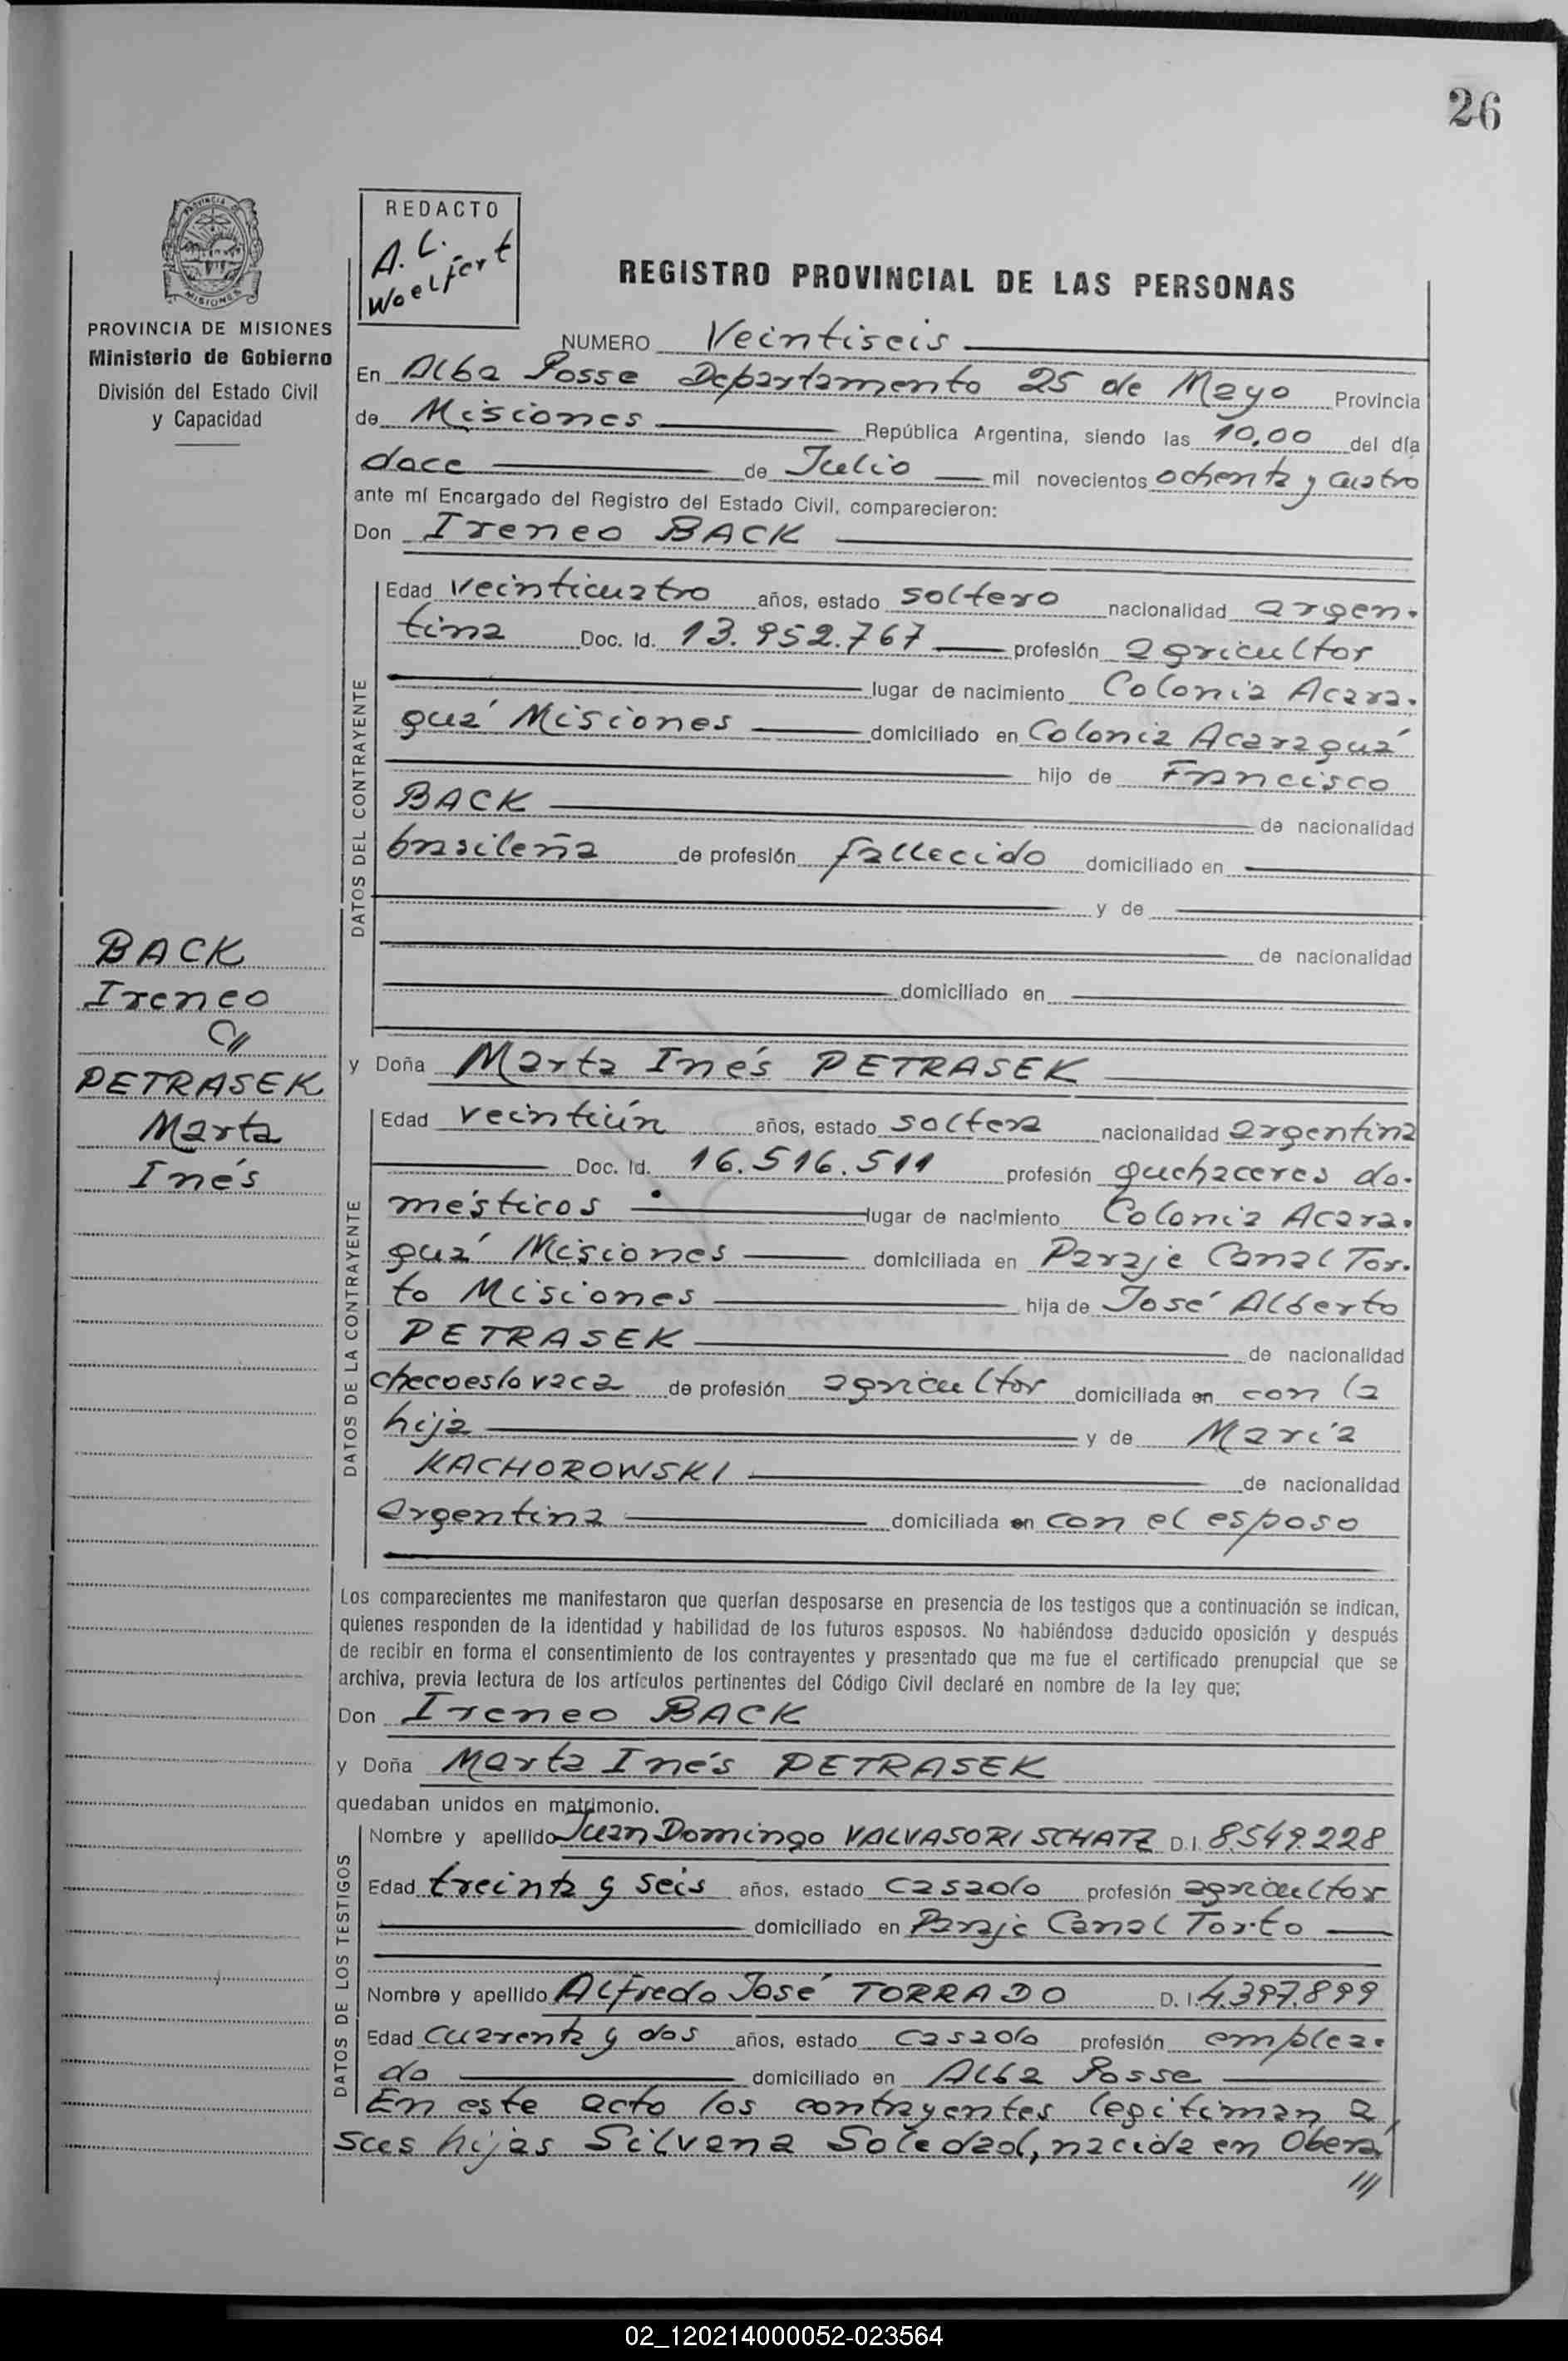 26
REDACTO
A. L.
Woelfert
REGISTRO PROVINCIAL DE LAS PERSONAS
PROVINCIA DE MISIONES
Ministerio de Gobierno
División del Estado Civil
y Capacidad
NUMERO Veintiseis
En Alba Posse Departamento 25 de Mayo Provincia
de Misiones República Argentina, siendo las 10,00 del día
doce de Julio mil novecientos ochenta y cuatro
ante mí Encargado del Registro del Estado Civil, comparecieron:
Don Ireneo BACK
DATOS DEL CONTRAYENTE
Edad veinticuatro años, estado soltero nacionalidad argen-
tina Doc. Id. 13.952.767 profesión agricultor
lugar de nacimiento Colonia Acara-
guá Misiones domiciliado en Colonia Acaraguá
hijo de Francisco
BACK de nacionalidad
brasileña de profesión fallecido domiciliado en
y de
de nacionalidad
domiciliado en
BACK
Ireneo
C//
PETRASEK
Marta
Inés
y Doña Marta Inés PETRASEK
DATOS DE LA CONTRAYENTE
Edad veintiún años, estado soltera nacionalidad argentina
Doc. Id. 16.516.511 profesión quehaceres do-
mésticos lugar de nacimiento Colonia Acara-
guá Misiones domiciliada en Paraje Canal Tor-
to Misiones hija de José Alberto
PETRASEK de nacionalidad
checoeslovaca de profesión agricultor domiciliada en con la
hija y de María
KACHOROWSKI de nacionalidad
argentina domiciliada en con el esposo
Los comparecientes me manifestaron que querían desposarse en presencia de los testigos que a continuación se indican,
quienes responden de la identidad y habilidad de los futuros esposos. No habiéndose deducido oposición y después
de recibir en forma el consentimiento de los contrayentes y presentado que me fue el certificado prenupcial que se
archiva, previa lectura de los artículos pertinentes del Código Civil declaré en nombre de la ley que;
Don Ireneo BACK
y Doña Marta Inés PETRASEK
quedaban unidos en matrimonio.
DATOS DE LOS TESTIGOS
Nombre y apellido Juan Domingo VALVASORI SCHATZ D.I. 8.549.228
Edad treinta y seis años, estado casado profesión agricultor
domiciliado en Paraje Canal Torto
Nombre y apellido Alfredo José TORRADO D. I. 4.397.899
Edad cuarenta y dos años, estado casado profesión emplea-
do domiciliado en Alba Posse
En este acto los contrayentes legitiman a
sus hijas Silvana Soledad, nacida en Oberá
///
02_120214000052-023564